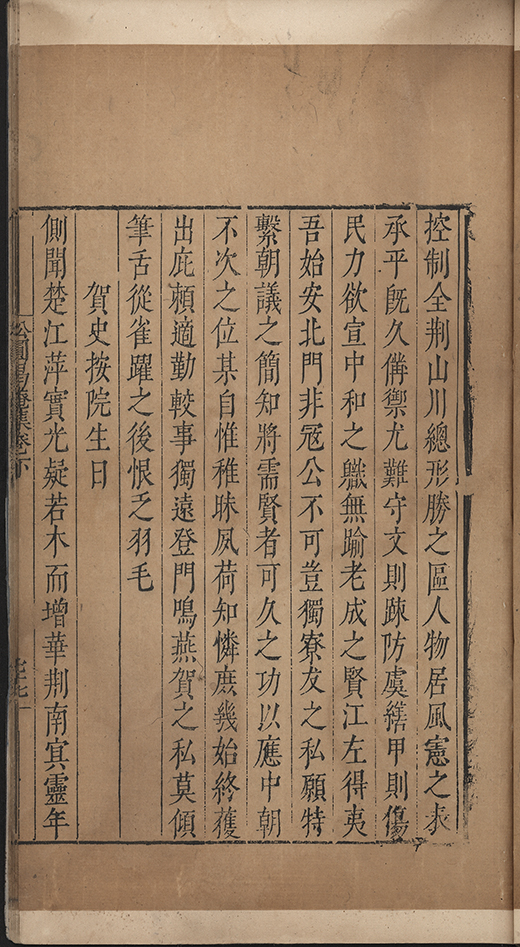 控制全荆山川總形勝之區人物居風憲之表
承平旣久備禦尤難守文則疎防虞繕甲則傷
民力欲宣中和之軄無踰老成之賢江左得夷
吾始安北門非冦公不可豈獨寮友之私願特
繫朝議之簡知將需賢者可久之功以應中朝
不次之位某自惟稚昧夙荷知憐庶幾始終獲
出庇頼適勤較事獨遠登門鳴燕賀之私莫傾
筆舌從雀躍之後恨乏羽毛
賀史按院生日
側聞楚江萍實光疑若木而增華荆南㝠靈年
松圓偈庵集卷下